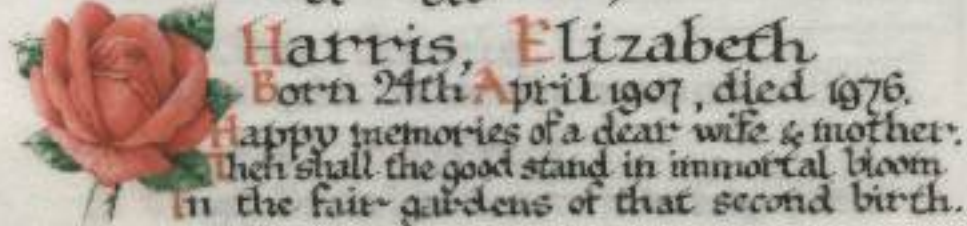 Harris, Elizabeth
Born 24th April 1907, died 1976.
Happy memories of a dear wife & mother.
Then shall the good stand in immortal bloom
In the fair gardens of that second birth.